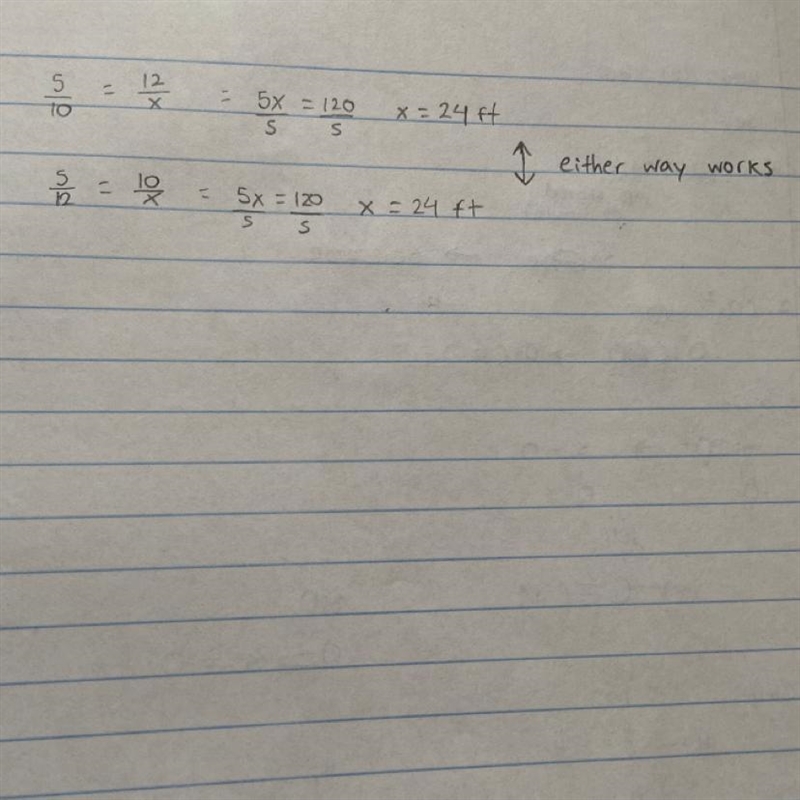 5/10 = 12/x = 5x/5 = 120/5 x = 24 ft
either way works
5/12 = 10/x = 5x/5 = 120/5 x = 24 ft